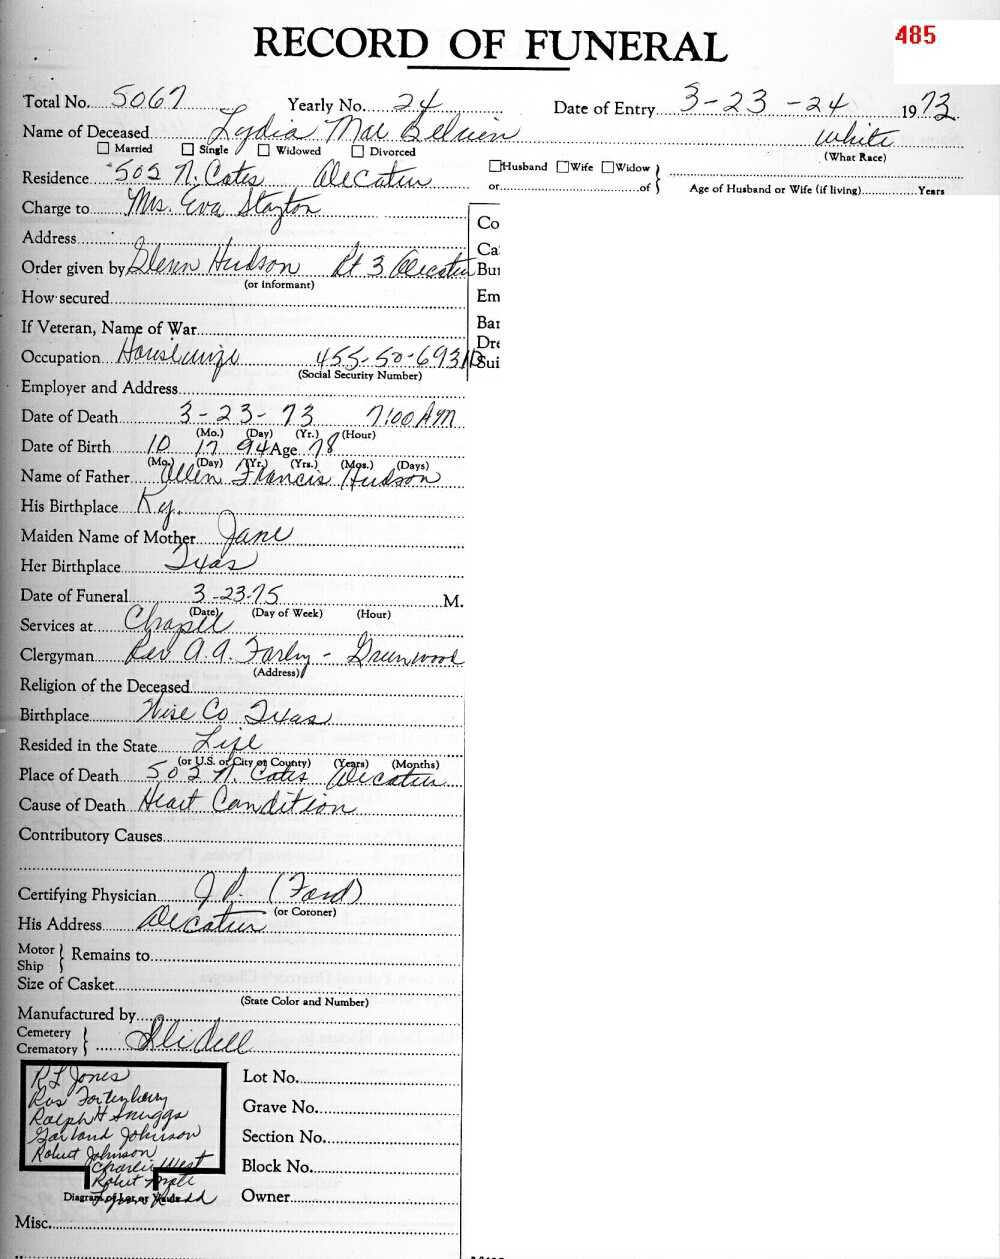 485
RECORD OF FUNERAL
Total No. 5067 Yearly No. 24 Date of Entry 3-23-24 1973
Name of Deceased Lydia Mae white
Married Single Widowed Divorced (What Race)
Residence 502 N. Cates Decatur Husband Wife Widow
or of Age of Husband or Wife (if living) Years
Charge to Mrs. Eva Stayton
Co
Address
Ca
Order given by Glenn Hudson Rt 3 Decatur Bur
(or informant)
How secured Em
If Veteran, Name of War Bar
Dre
Occupation Housewife 455-50-6931D Sui
(Social Security Number)
Employer and Address
Date of Death 3-23-73 7:00 AM
(Mo.) (Day) (Yr.) (Hour)
Date of Birth 10 17 94 Age 78
(Mo.) (Day) (Yr.) (Yrs.) (Mos.) (Days)
Name of Father Allen Francis Hudson
His Birthplace Ky.
Maiden Name of Mother Jane
Her Birthplace Texas
Date of Funeral 3-23-75 M.
(Date) (Day of Week) (Hour)
Services at Chapel
Clergyman Rev A.A. - Greenwood
(Address)
Religion of the Deceased
Birthplace Wise Co Texas
Resided in the State Life
(or U.S. or City or County) (Years) (Months)
Place of Death 502 N. Cates Decatur
Cause of Death Heart Condition
Contributory Causes
Certifying Physician J.P. (Ford)
(or Coroner)
His Address Decatur
Motor
Ship Remains to
Size of Casket
(State Color and Number)
Manufactured by
Cemetery
Crematory Slidell
RL Jones
Fortenberry
Ralph H Scruggs
Garland Johnson
Robert Johnson
Charlie West
Robert
Diagram of Lot or Vault
Lot No.
Grave No.
Section No.
Block No.
Owner
Misc.